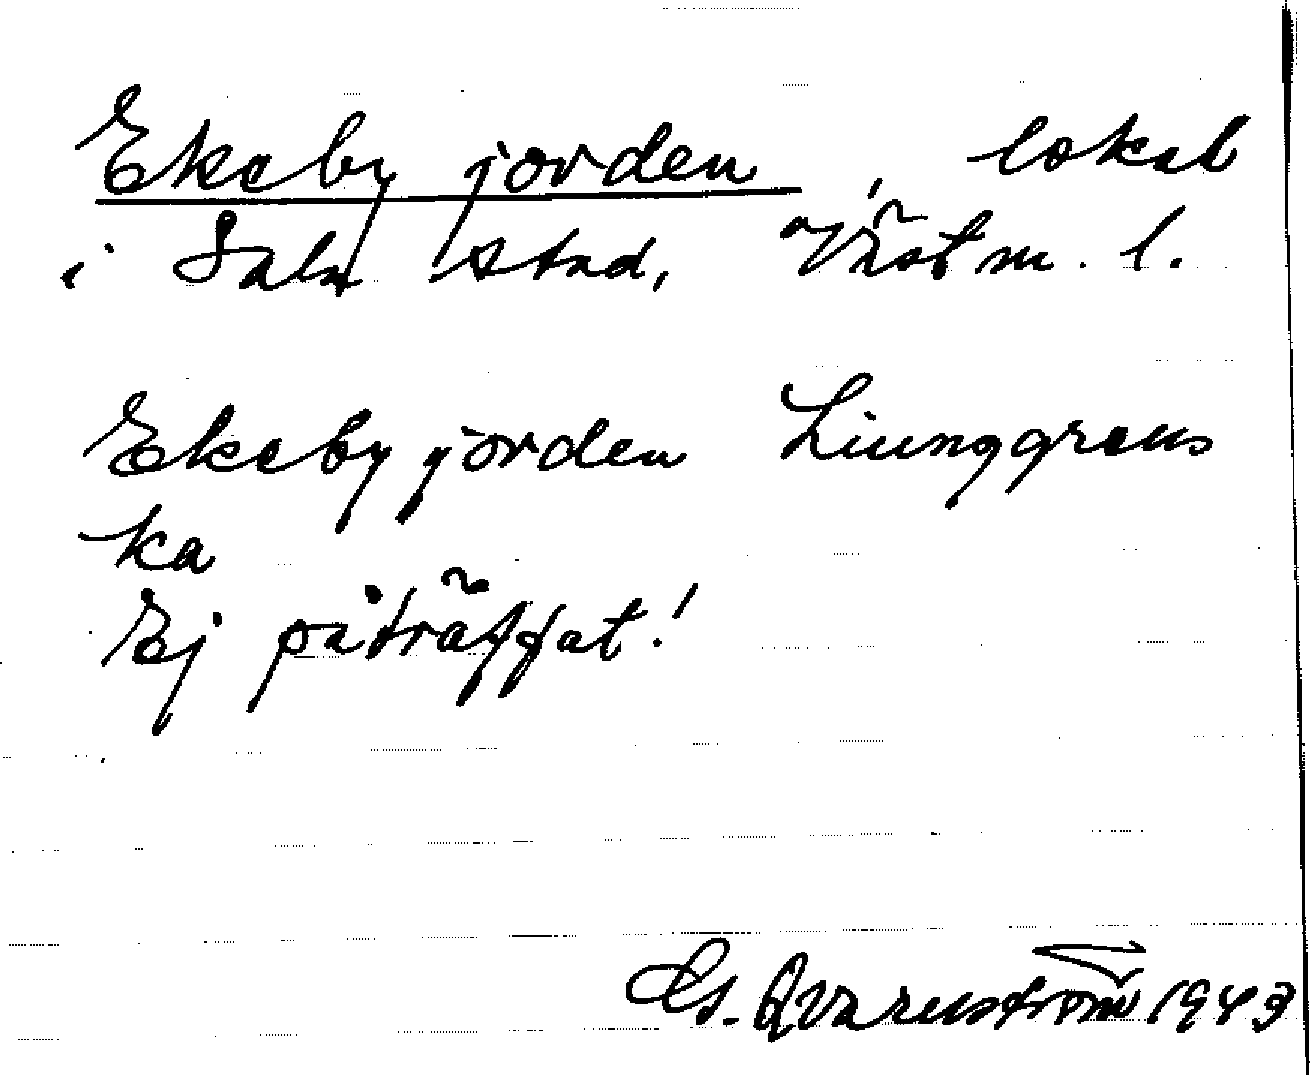 Ekeby jorden, lokal
i Sala stad, Västm. l.
Ekebyjorden Liunggrens
ka
Ej påträffat!
G. Qvarnström 1943